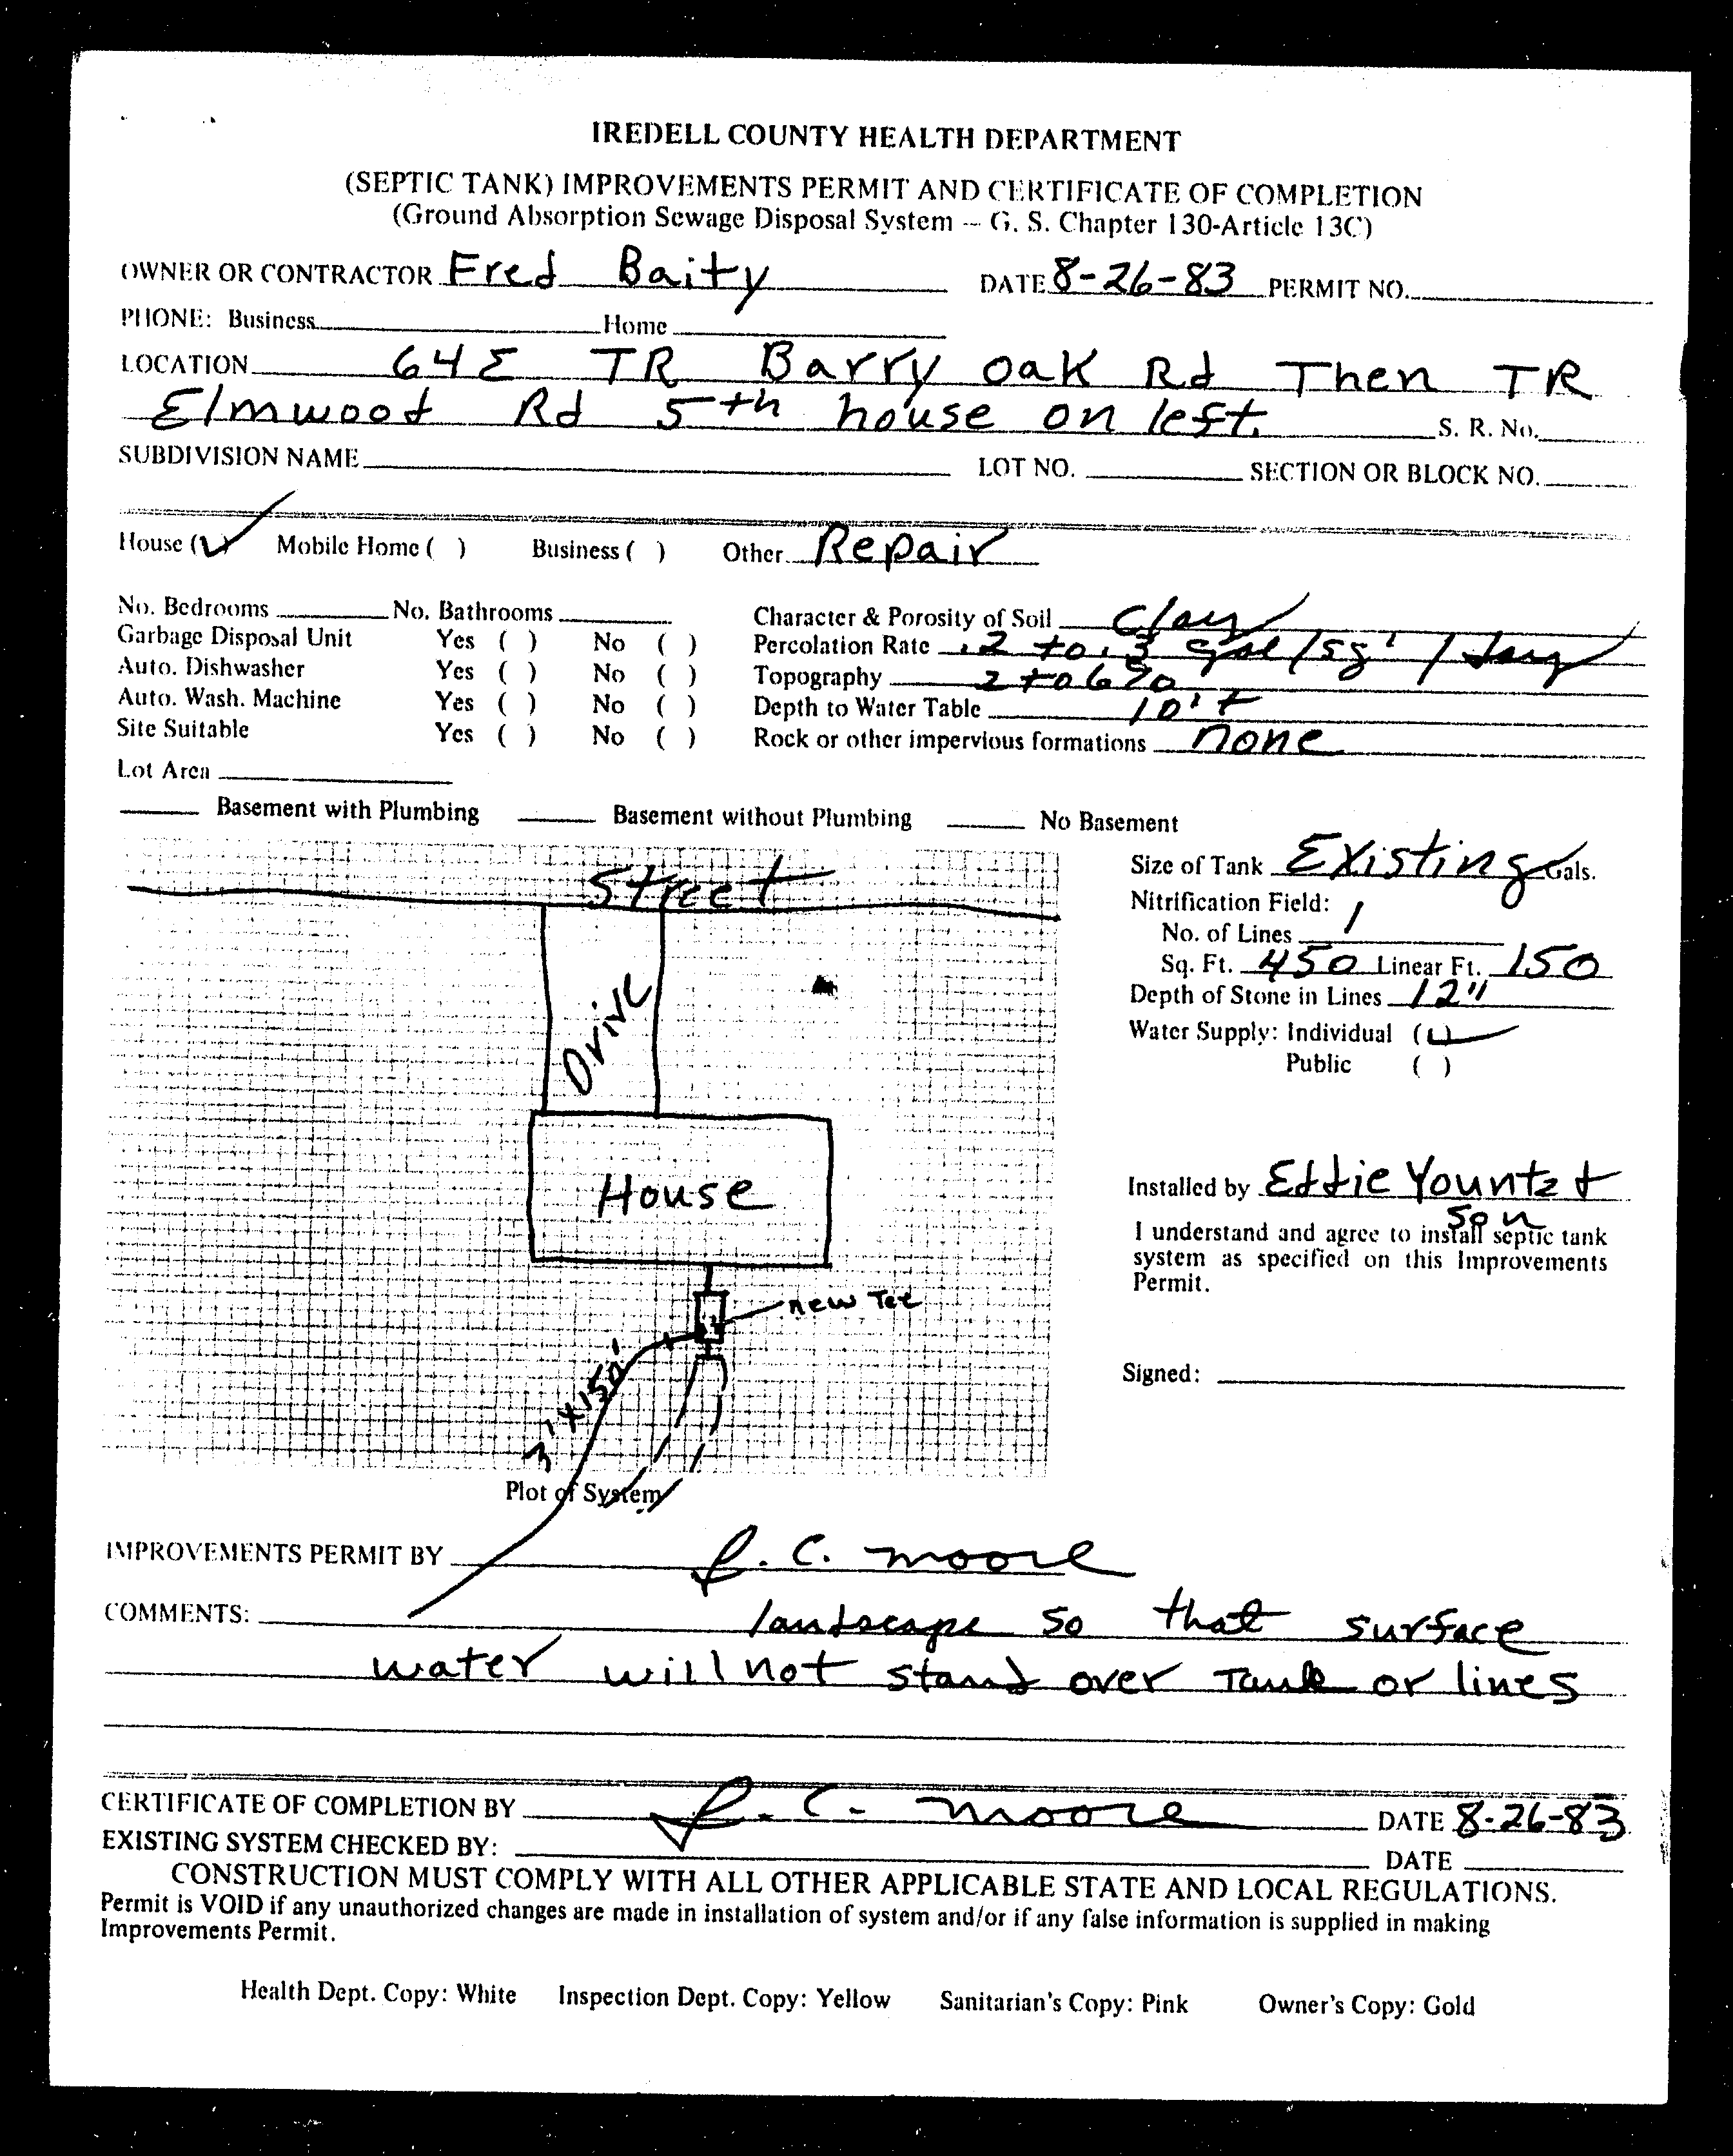 IREDELL COUNTY HEALTH DEPARTMENT
(SEPTIC TANK) IMPROVEMENTS PERMIT AND CERTIFICATE OF COMPLETION
(Ground Absorption Sewage Disposal System -- G. S. Chapter 130-Article 13C)
OWNER OR CONTRACTOR Fred Baity DATE 8-26-83 PERMIT NO.
PHONE: Business Home
LOCATION 64 E TR Barry Oak Rd Then TR
Elmwood Rd 5th house on left. S. R. No.
SUBDIVISION NAME LOT NO. SECTION OR BLOCK NO.
House (✓) Mobile Home ( ) Business ( ) Other Repair
No. Bedrooms No. Bathrooms Character & Porosity of Soil Clay
Garbage Disposal Unit Yes ( ) No ( ) Percolation Rate .2 to .3 gal/sq'/day
Auto. Dishwasher Yes ( ) No ( ) Topography 2 to 6%
Auto. Wash. Machine Yes ( ) No ( ) Depth to Water Table 10'+
Site Suitable Yes ( ) No ( ) Rock or other impervious formations none
Lot Area
Basement with Plumbing Basement without Plumbing No Basement
Street
Drive
House
new Tee
3'x150'
Plot of System
Size of Tank Existing Gals.
Nitrification Field:
No. of Lines 1
Sq. Ft. 450 Linear Ft. 150
Depth of Stone in Lines 12"
Water Supply: Individual (✓)
Public ( )
Installed by Eddie Yountz +
Son
I understand and agree to install septic tank
system as specified on this Improvements
Permit.
Signed:
IMPROVEMENTS PERMIT BY J. C. Moore
COMMENTS: landscape so that surface
water will not stand over Tank or lines
CERTIFICATE OF COMPLETION BY J. C. Moore DATE 8-26-83
EXISTING SYSTEM CHECKED BY: DATE
CONSTRUCTION MUST COMPLY WITH ALL OTHER APPLICABLE STATE AND LOCAL REGULATIONS.
Permit is VOID if any unauthorized changes are made in installation of system and/or if any false information is supplied in making
Improvements Permit.
Health Dept. Copy: White Inspection Dept. Copy: Yellow Sanitarian's Copy: Pink Owner's Copy: Gold